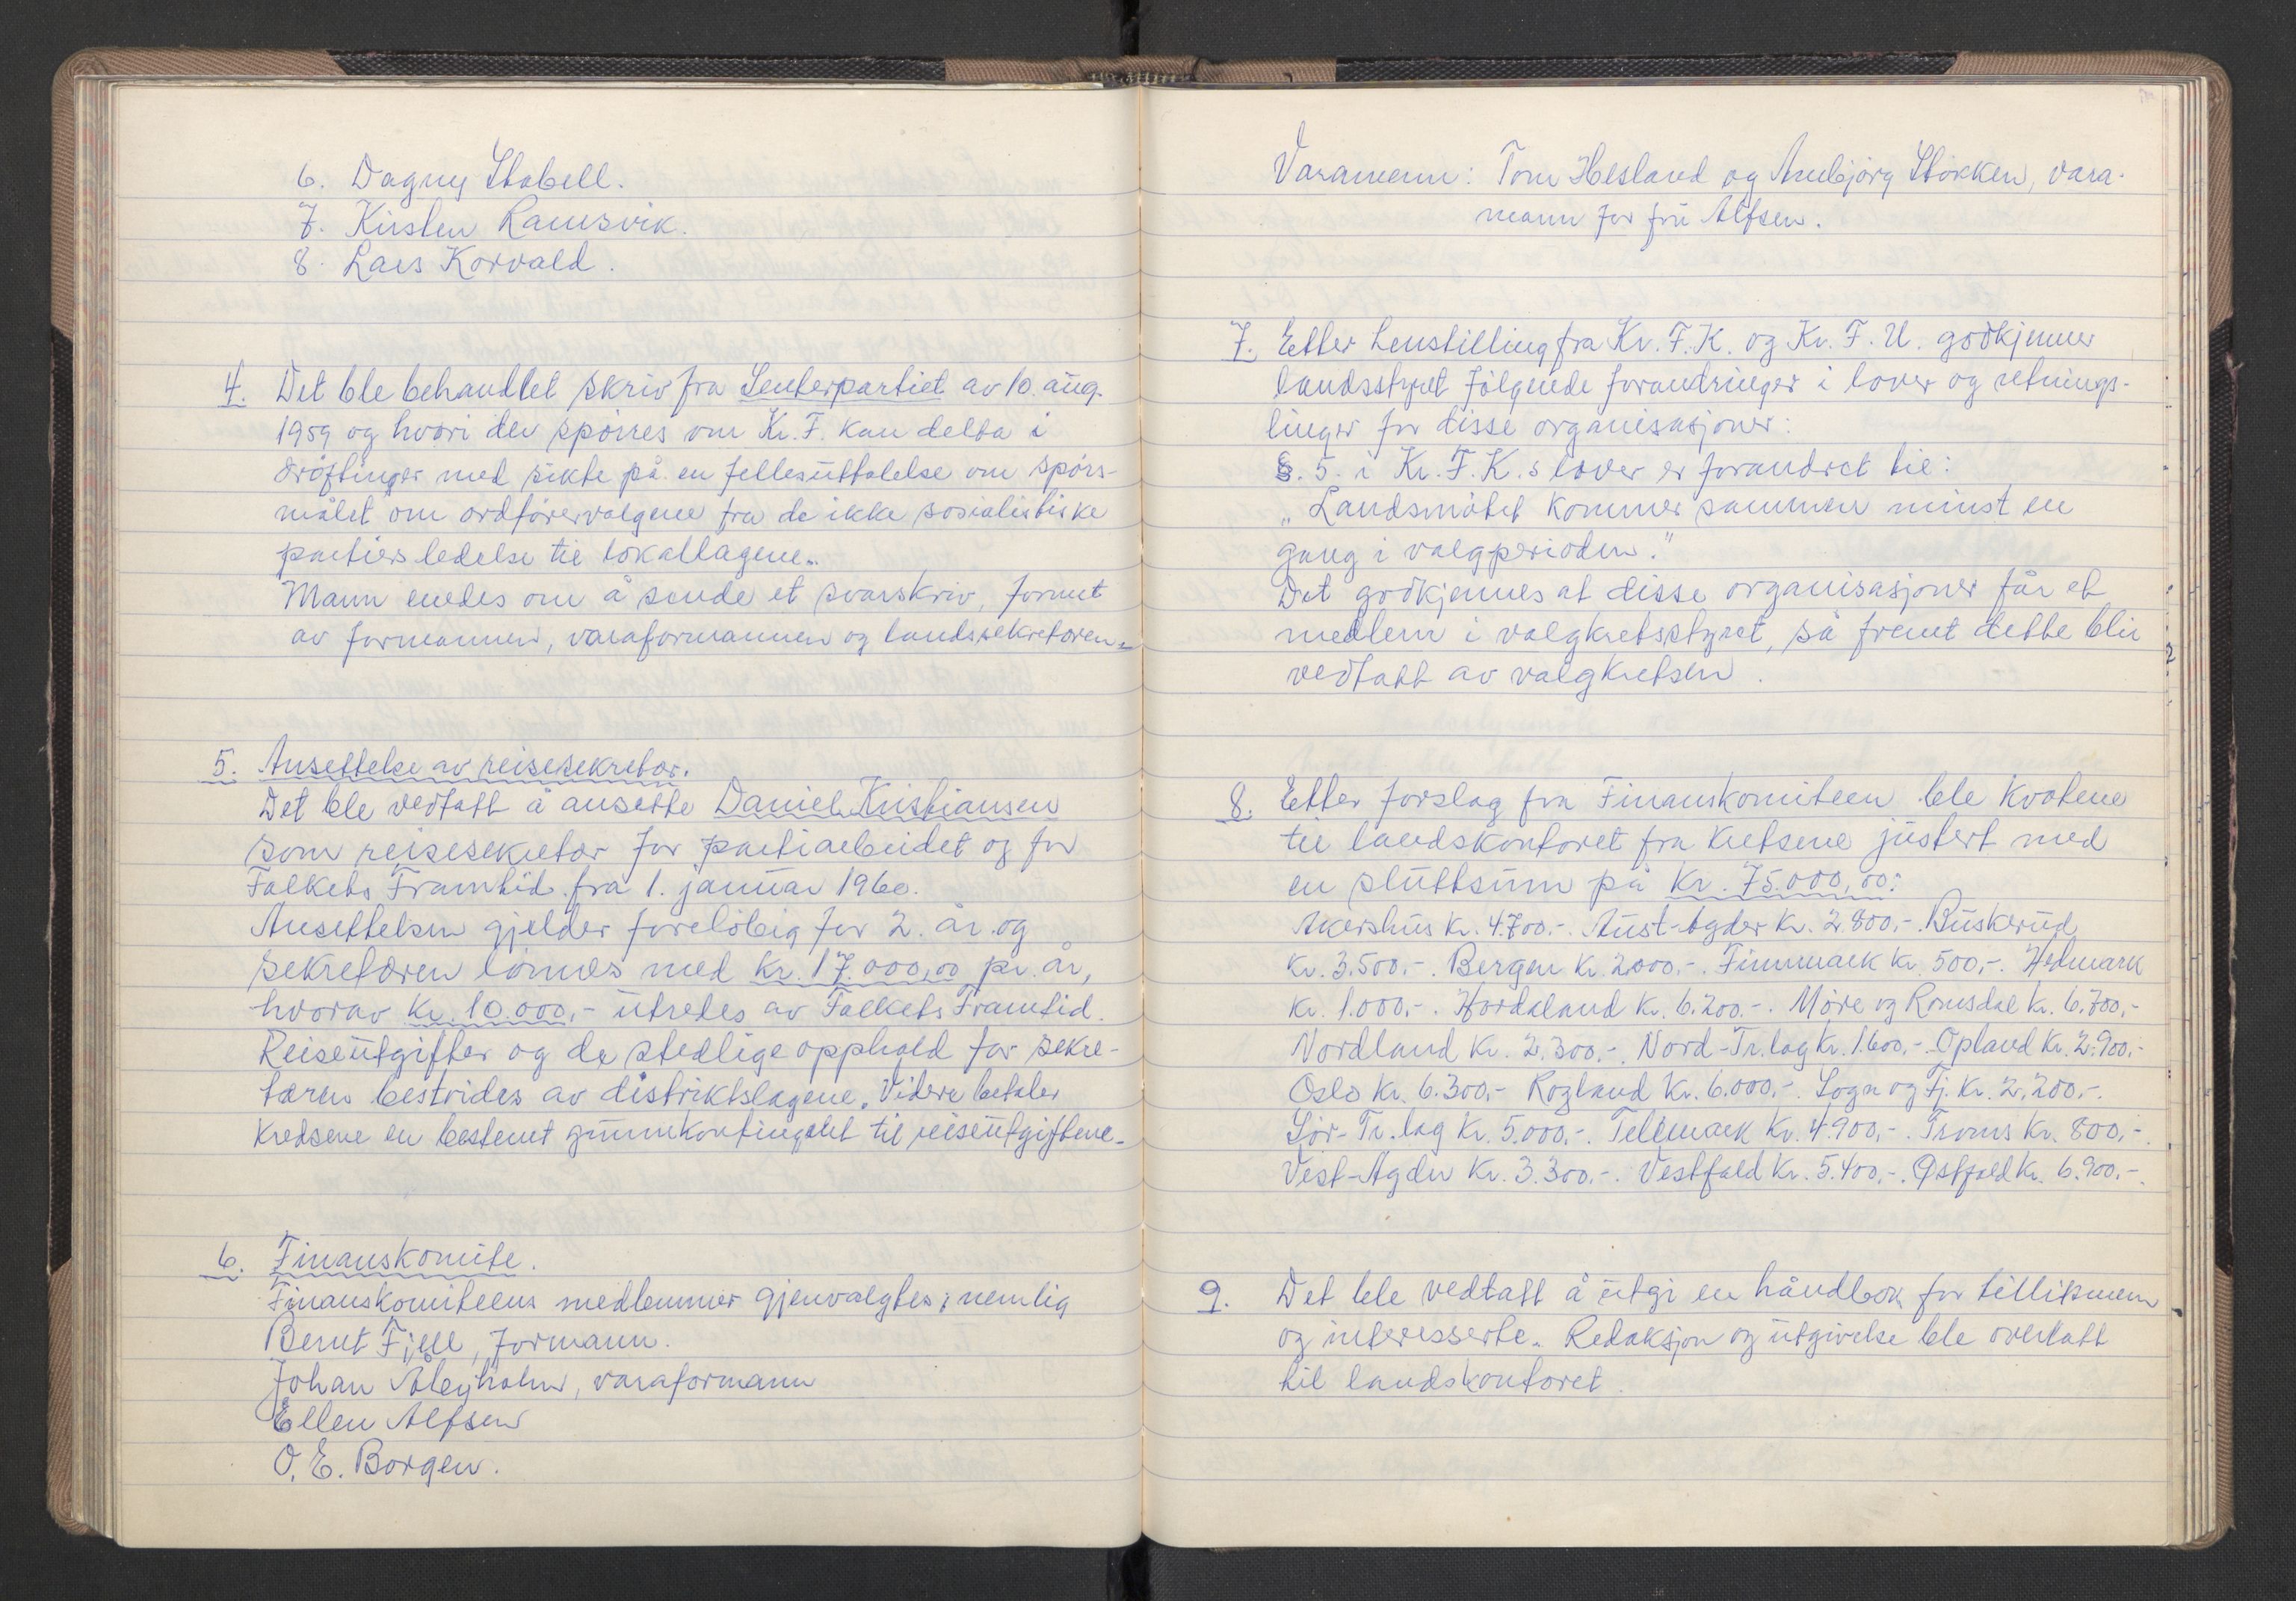 6. Dagny Stabell.
7. Kirsten Ramsvik.
8. Lars Korvald.
4. Det ble behandlet skriv fra Senterpartiet av 10. aug.
1959 og hvori der spørres om Kr. F. kan delta i
drøftinger med sikte på en fellesuttalelse om spørs-
målet om ordførervalgene fra de ikke sosialistiske
partiers ledelse til lokallagene.
Mann enedes om å sende et svarskriv, formet
av formannen, varaformannen og landssekretæren.
5. Ansettelse av reisesekretær.
Det ble vedtatt å ansette Daniel Kristiansen
som reisesekretær for partiarbeidet og for
Folkets Framtid fra 1. januar 1960.
Ansettelsen gjelder foreløbig for 2. år og
sekretæren lønnes med kr. 17.000,00 pr. år,
hvorav kr. 10.000,- utredes av Folkets Framtid.
Reiseutgifter og de stedlige opphold for sekre-
tæren bestrides av distriktslagene. Videre betaler
Kredsene en bestemt grunnkontingent til reiseutgiftene.
6. Finanskomite.
Finanskomiteens medlemmer gjenvalgtes; nemlig
Bernt Fjell, formann.
Johan Åleyholm, varaformann
Ellen Alfsen
O. E. Borgen.
Varamenn: Tom Hesland og Annbjørg Støkken, vara-
mann for fru Alfsen.
7. Etter henstilling fra Kr. F. K. og Kr. F. U. godkjenner
landsstyret følgende forandringer i lover og retnings-
linjer for disse organisasjoner:
§. 5. i Kr. F. K.s lover er forandret til:
„Landsmøtet kommer sammen minst en
gang i valgperioden."
Det godkjennes at disse organisasjoner får et
medlem i valgkretsstyret, så fremt dette blir
vedtatt av valgkretsen.
8. Etter forslag fra Finanskomiteen ble kvotene
til landskontoret fra kretsene justert med
en sluttsum på kr. 75.000,00:
Akershus kr. 4.700.-. Aust-Agder kr. 2.800,-. Buskerud
kr. 3.500.-. Bergen kr. 2.000.-. Finnmark kr. 500,-. Hedmark
kr. 1.000.-. Hordaland kr. 6.200.-. Møre og Romsdal kr. 6.700,-
Nordland kr. 2.300.-. Nord-Tr.lag kr. 1.600,-. Opland kr. 2.900.-
Oslo kr. 6.300,- Rogland kr. 6.000,-. Sogn og Fj. kr. 2.200,-.
Sør-Tr.lag kr. 5.000,-. Telemark kr. 4.900,-. Troms kr. 800,-.
Vest-Agder kr. 3.300,-. Vestfold kr. 5.400,-. Østfold kr. 6.900,-.
9. Det ble vedtatt å utgi en håndbok for tillitsmenn
og interesserte. Redaksjon og utgivelse ble overlatt
til landskontoret.